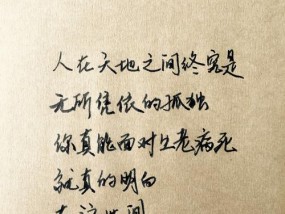 人在天地之间终究是
无所凭依的孤独
你真能面对生老病死
就真的明白
在这世间